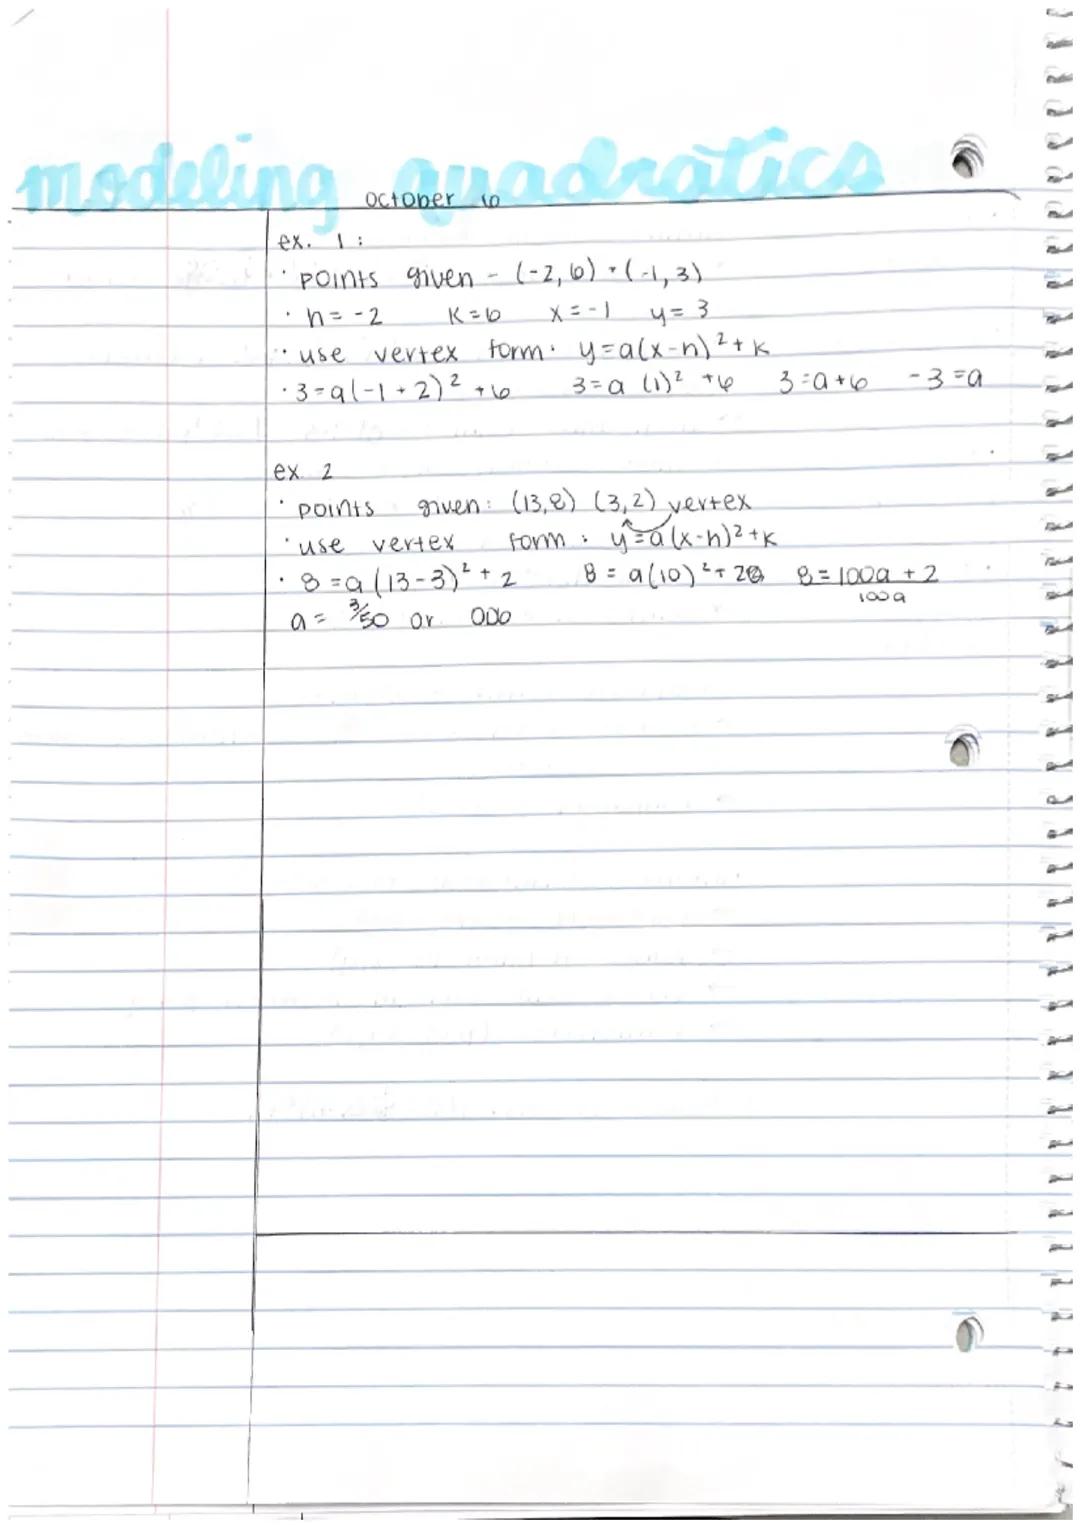 modeling quadratics
October 6
ex. 1:
· points given - (-2,6) · (-1,3)
· h = -2 K=6 x=-1 y=3
· use vertex form: y=a(x-h)²+k
· 3=a(-1+2)²+6 3=a(1)²+6 3=a+6 -3=a
ex. 2
· points given: (13,8) (3,2) vertex
· use vertex form: y=a(x-h)²+k
· 8=a(13-3)²+2 8=a(10)²+2 8=100a+2
100a
a= 3/50 or 006